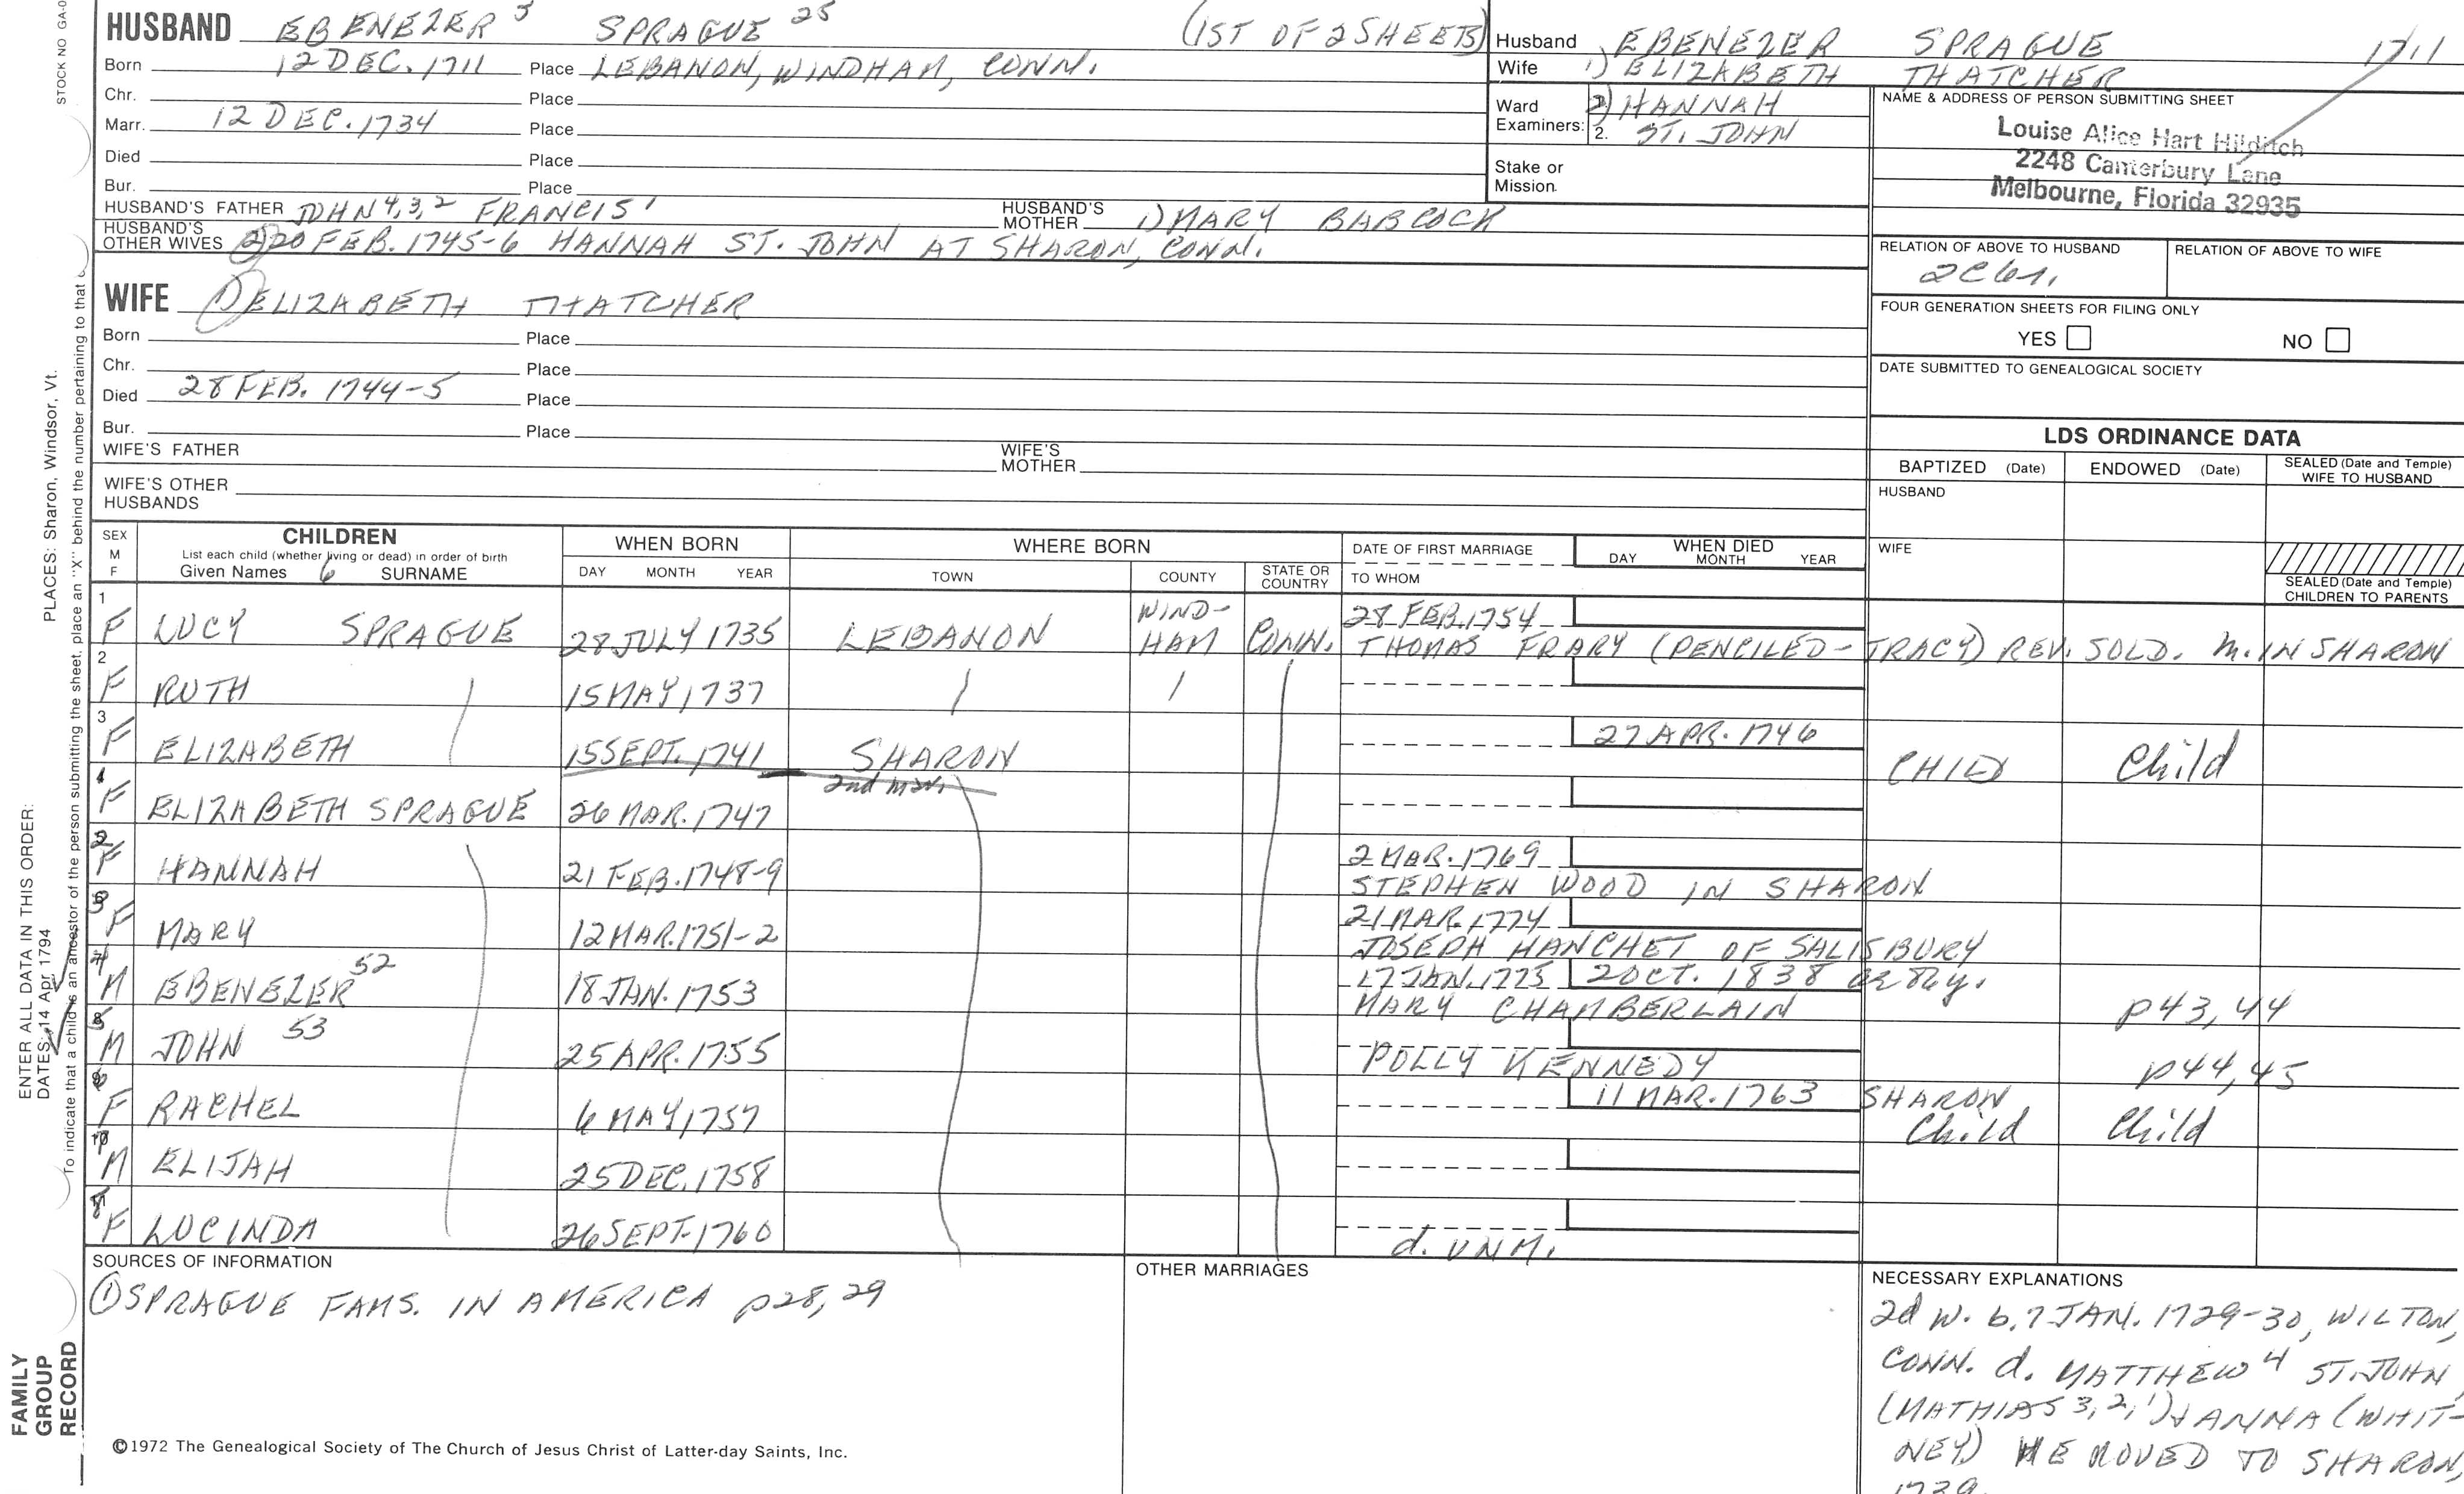 STOCK NO GA-0
HUSBAND EBENEZER 5 SPRAGUE 25 (1ST OF 2 SHEETS)
Born 12 DEC. 1711 Place LEBANON, WINDHAM, CONN.
Chr. Place
Marr. 12 DEC. 1734 Place
Died Place
Bur. Place
HUSBAND'S FATHER JOHN 4,3,2 FRANCIS 1 HUSBAND'S MOTHER 1) MARY BABCOCK
HUSBAND'S OTHER WIVES 2) 20 FEB. 1745-6 HANNAH ST. JOHN AT SHARON, CONN.
Husband EBENEZER SPRAGUE 1711
Wife 1) ELIZABETH THATCHER
Ward Examiners: 2) HANNAH
2. ST. JOHN
Stake or Mission
NAME & ADDRESS OF PERSON SUBMITTING SHEET
Louise Alice Hart Hilditch
2248 Canterbury Lane
Melbourne, Florida 32935
RELATION OF ABOVE TO HUSBAND RELATION OF ABOVE TO WIFE
FOUR GENERATION SHEETS FOR FILING ONLY
YES NO
DATE SUBMITTED TO GENEALOGICAL SOCIETY
WIFE 1) ELIZABETH THATCHER
Born Place
Chr. Place
Died 28 FEB. 1744-5 Place
Bur. Place
WIFE'S FATHER WIFE'S MOTHER
WIFE'S OTHER HUSBANDS
LDS ORDINANCE DATA
BAPTIZED (Date) ENDOWED (Date) SEALED (Date and Temple) WIFE TO HUSBAND
HUSBAND
WIFE
SEALED (Date and Temple) CHILDREN TO PARENTS
SEX M F CHILDREN List each child (whether living or dead) in order of birth Given Names 6 SURNAME WHEN BORN DAY MONTH YEAR WHERE BORN TOWN COUNTY STATE OR COUNTRY DATE OF FIRST MARRIAGE TO WHOM WHEN DIED DAY MONTH YEAR
1 F LUCY SPRAGUE 28 JULY 1735 LEBANON WIND-HAM CONN. 28 FEB. 1754
THOMAS FRARY (PENCILED - TRACY) REV. SOLD. M. IN SHARON
2 F RUTH 15 MAY 1737
3 F ELIZABETH 15 SEPT. 1741 SHARON 27 APR. 1746 CHILD Child
2nd marr.
F ELIZABETH SPRAGUE 26 MAR. 1747
F HANNAH 21 FEB. 1748-9 2 MAR. 1769
STEPHEN WOOD IN SHARON
F MARY 12 MAR. 1751-2 21 MAR. 1774
JOSEPH HANCHET OF SALISBURY
M EBENEZER 52 18 JAN. 1753 17 JAN. 1775 2 OCT. 1838
MARY CHAMBERLAIN p43,44
M JOHN 53 25 APR. 1755
POLLY KENNEDY p44,45
F RACHEL 6 MAY 1757 11 MAR. 1763 SHARON
Child Child
M ELIJAH 25 DEC. 1758
F LUCINDA 26 SEPT. 1760
d. UNM.
SOURCES OF INFORMATION
① SPRAGUE FAMS. IN AMERICA p28, 29
OTHER MARRIAGES
NECESSARY EXPLANATIONS
2d W. b. 7 JAN. 1729-30, WILTON,
CONN. d. MATTHEW 4 ST. JOHN
(MATHIAS 3,2,1) & ANNA (WHIT-
NEY) HE MOVED TO SHARON,
1739.
©1972 The Genealogical Society of The Church of Jesus Christ of Latter-day Saints, Inc.
FAMILY
GROUP
RECORD
ENTER ALL DATA IN THIS ORDER:
DATES: 14 Apr 1794
PLACES: Sharon, Windsor, Vt.
To indicate that a child is an ancestor of the person submitting the sheet, place an "X" behind the number pertaining to that c